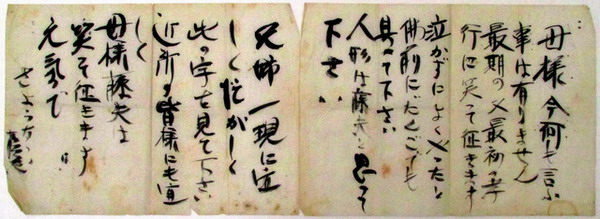 母様今何も言ふ
事は有りません
最期の又最初の孝
行に笑って征きます
泣かずによくやったと
佛前にだんごでも
具へて下さい
人形は藤夫と思って
下さい
兄姉一現に宜
しく忙がしく
此の字を見て下さい
近所の皆様にも宜
しく
母様藤夫は
笑って征きます
元気で
さようなら